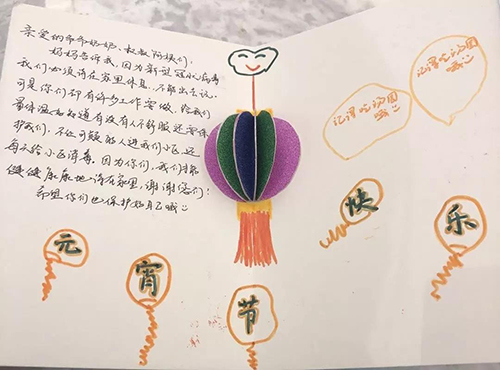 亲爱的爷爷奶奶、叔叔阿姨们:
妈妈告诉我,因为新型冠状病毒
我们必须待在家里休息,不能出去玩。
可是你们却有许多工作要做,给我们
量体温、知道有没有人不舒服还要保
护我们,不让可疑的人进我们小区,还
每天给小区消毒。因为你们,我们才能
健健康康地待在家里,谢谢您们!
希望你们也保护好自己哦
记得吃汤圆
哦
记得吃汤圆
哦
元宵节快乐